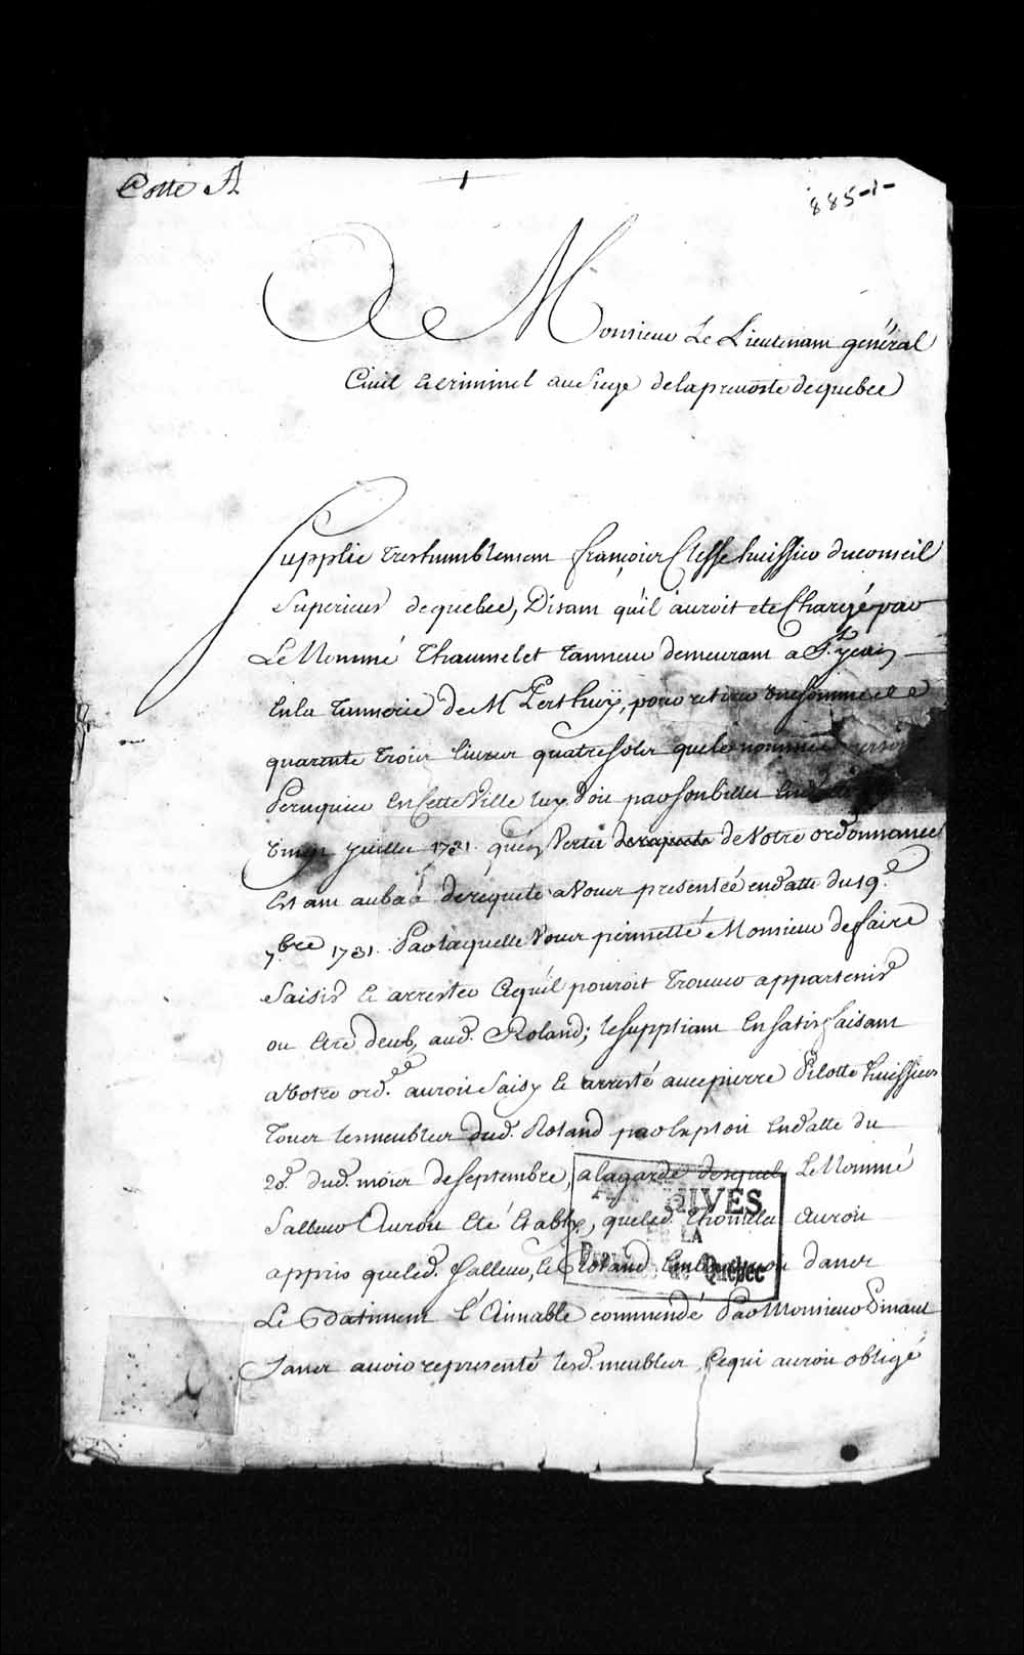 Cotte A
885-1-
A Monsieur Le Lieutenant général
Civil et criminel au siege de la prevosté de quebec
Supplie tres humblement françois Clesse huissier du conseil
Superieur de quebec, Disant qu'il auroit eté Chargé par
Le Nommé Thaumelet tanneur demeurant a St. jean
En la tannerie de Mr Perthuy, pour retirer une somme de
quarente trois livres quatre sols que le nommé
Peruquier en Cette Ville luy doit par son billet En datte
Vingt juillet 1731. qu'en Vertu de requete de Votre ordonnance
Estant au bas de requete a Vous presentée en datte du 19e
7bre 1731. Par laquelle Vous permetté Monsieur de faire
Saisir et arrester Ce qu'il pouroit trouver appartenir
ou etre deub, aud. Roland; le suppliant En satisfaisant
a Votre ordce. auroit Saisy et arresté avec pierre Pilotte huissier
Tous les meubles dud. Roland par exploit En datte du
28e dud. mois de septembre, a la garde desquel Le Nommé
Salleur Auroit été Etably, que led. Thomelet Auroit
appris que led. Salleur, et Roland Embarquoit dans
Le Batiment L'Aimable commendé Par Monsieur Pinaut
Sans avoir representé lesd. meubles, Ce qui auroit obligé
ARCHIVES
DE LA
Province de Québec